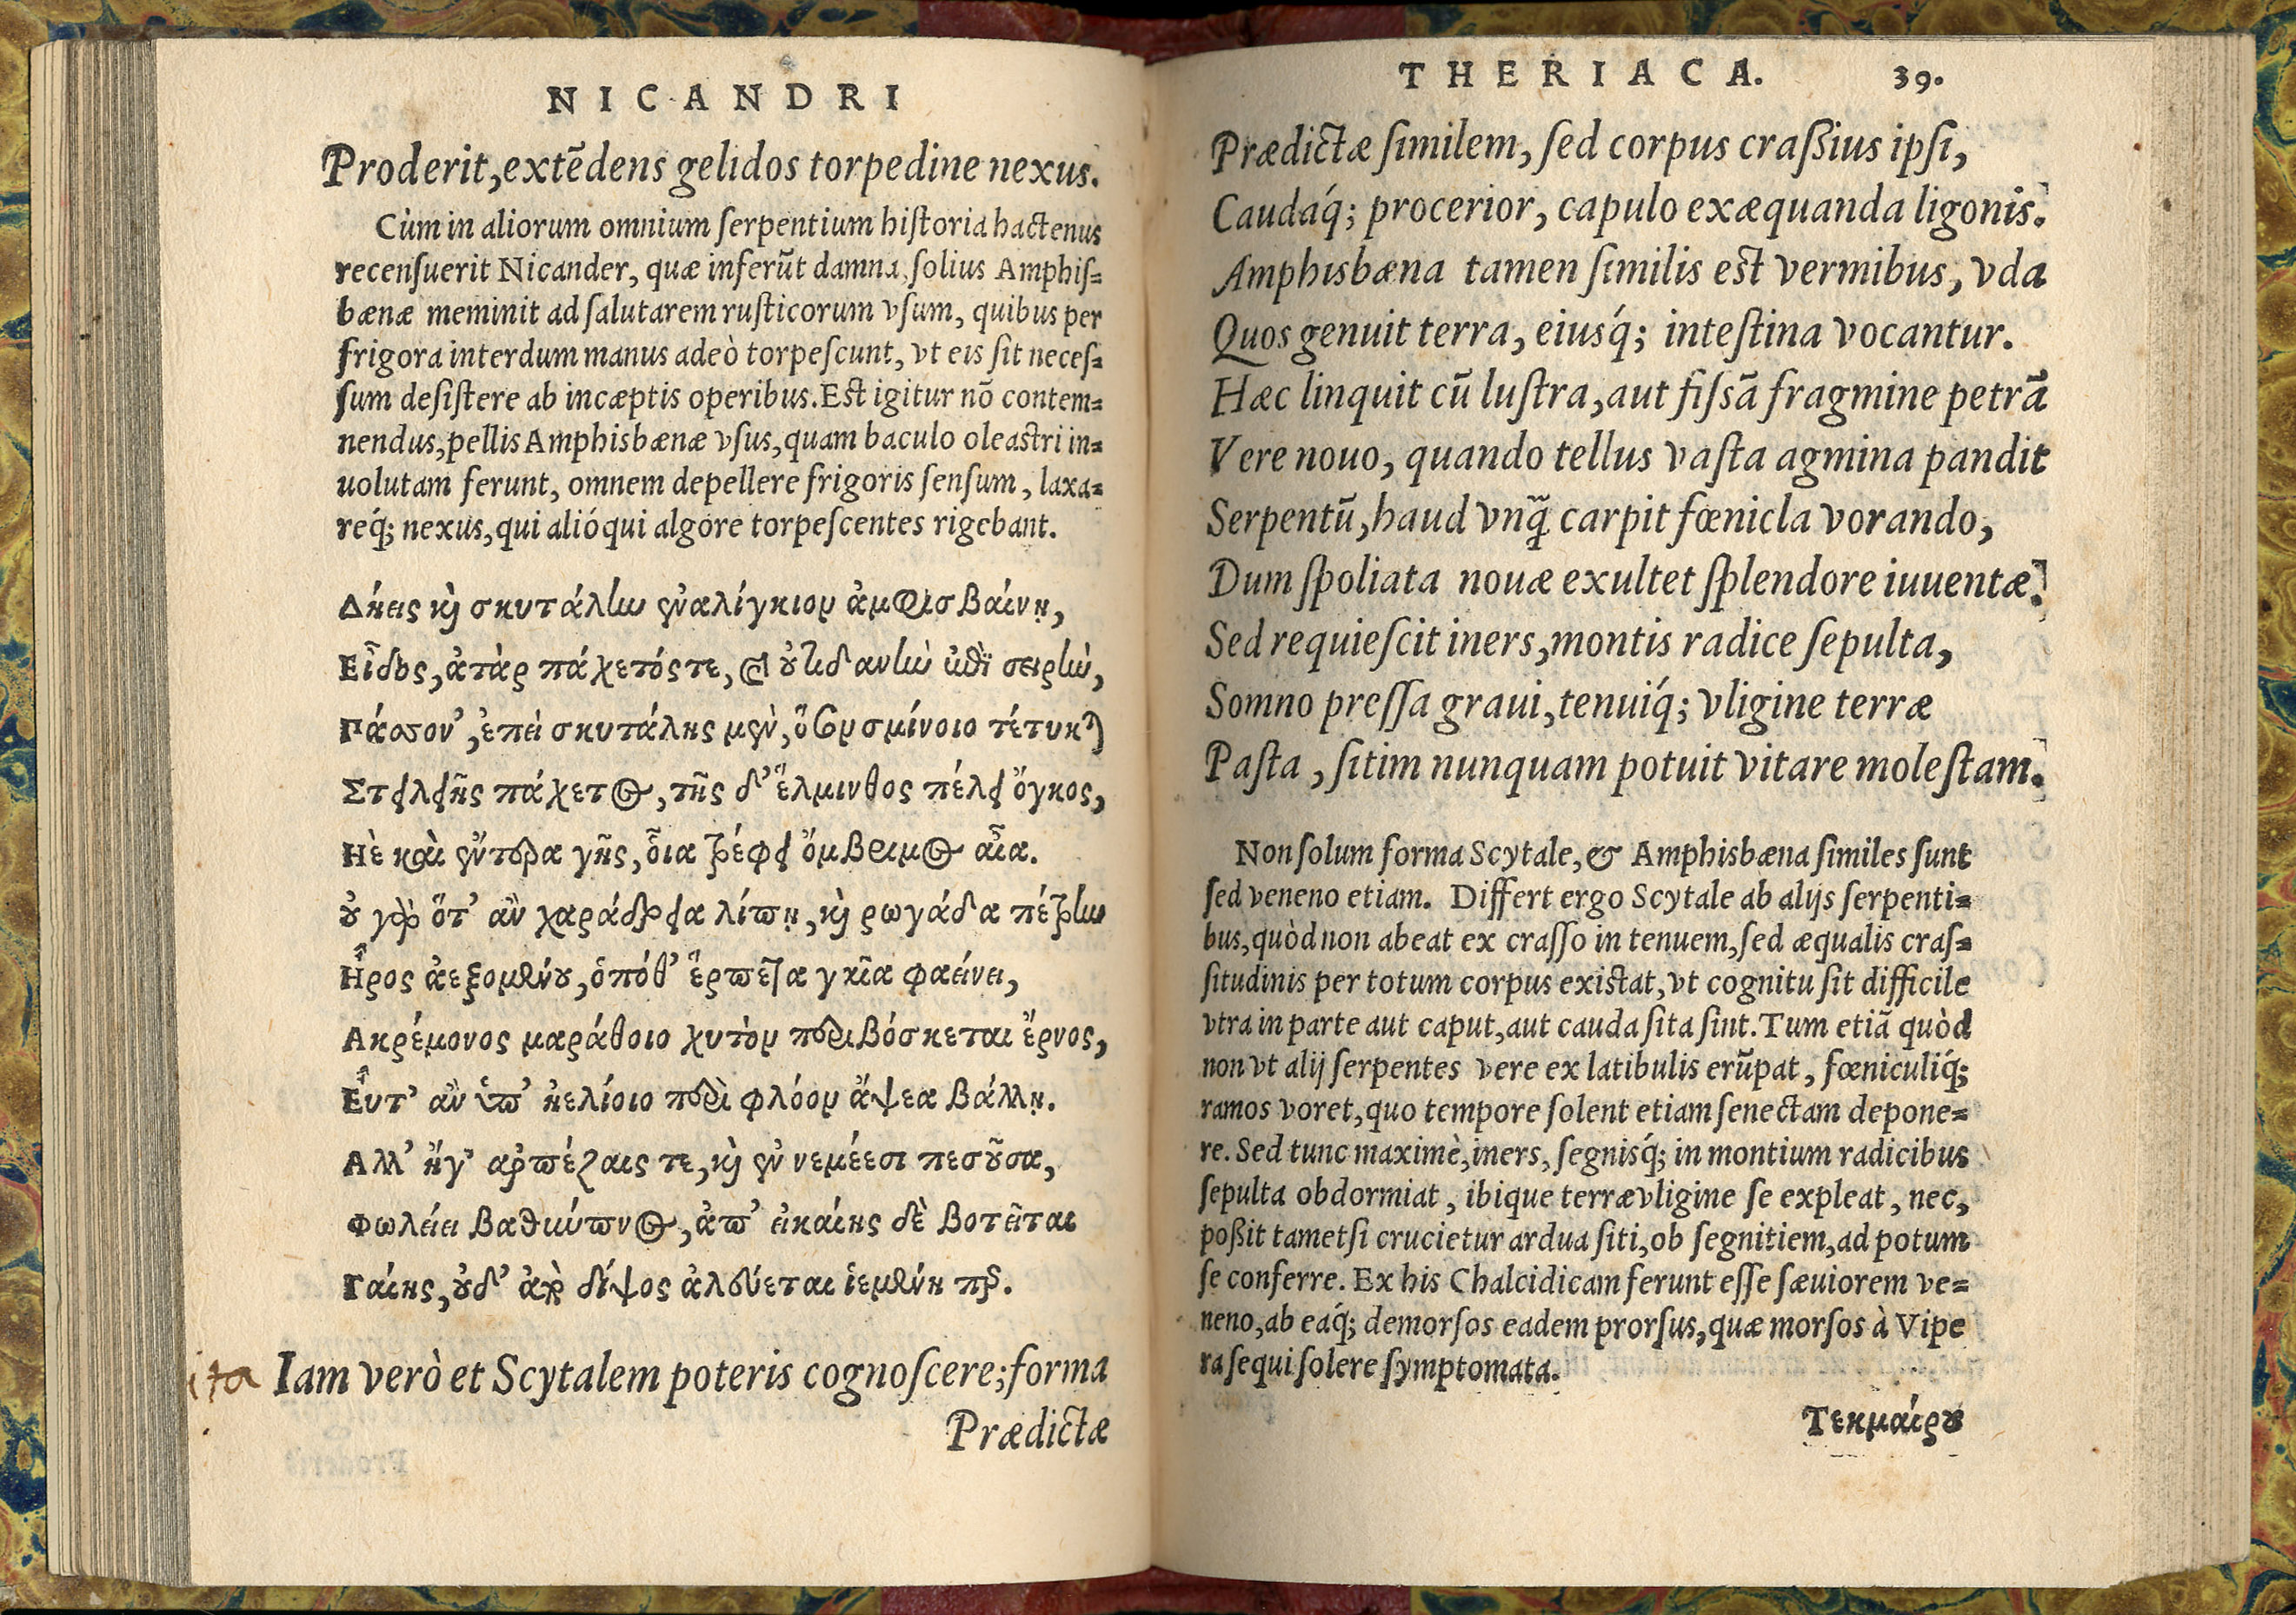 NICANDRI
Proderit, extēdens gelidos torpedine nexus.
Cùm in aliorum omnium ſerpentium hiſtoria hactenus
recenſuerit Nicander, quæ inferūt damna, ſolius Amphiſ=
bænæ meminit ad ſalutarem ruſticorum vſum, quibus per
frigora interdum manus adeò torpeſcunt, vt eis ſit neceſ=
ſum deſiſtere ab incæptis operibus. Eſt igitur nō contem=
nendus, pellis Amphisbænæ vſus, quam baculo oleaſtri in=
uolutam ferunt, omnem depellere frigoris ſenſum, laxa=
req́; nexus, qui alióqui algore torpeſcentes rigebant.
Δήεις κὶ σκυτάλην ἐναλίγκιον ἀμφισβαίνῃ,
Εἶδος, ἀτὰρ πάχετόςτε, καὶ οὐτιδανὴν ἐπὶ σειρὴν,
Πάσσον', ἐπεὶ σκυτάλης μὲν, ὅσον σμίνοιο τέτυκται
Στειλειῆς πάχετος, τῆς δ' ἕλμινθος πέλει ὄγκος,
Ηὲ καὶ ἔντερα γῆς, οἷα τρέφει ὄμβριμος αἶα.
Οὐ γὰρ ὅτ' ἂν χαράδρεια λίπῃ, κὶ ρωγάδα πέτρην
Ηρος ἀεξομένου, ὁπόθ' ἑρπετὰ γαῖα φαείνει,
Ακρέμονος μαράθοιο χυτὸν περιβόσκεται ἔρνος,
Εὖτ' ἂν ὑπ' ἠελίοιο περὶ φλόον ἅψεα βάλλῃ.
Αλλ' ἥγ' ἁρπέζαις τε, κὶ ἐν νεμέεσι πεσοῦσα,
Φωλεύει βαθύυπνος, ἀπ' εἰκαίης δὲ βοτεῖται
Γαίης, οὐδ' ἀπὸ δίψος ἀλεύεται ἱεμένη περ.
ita Iam verò et Scytalem poteris cognoſcere; forma
Prædictæ
THERIACA. 39.
Prædictæ ſimilem, ſed corpus craßius ipſi,
Caudaq́; procerior, capulo exæquanda ligonis.
Amphisbæna tamen ſimilis eſt vermibus, vda
Quos genuit terra, eiusq́; inteſtina vocantur.
Hæc linquit cū luſtra, aut fiſsā fragmine petrā
Vere nouo, quando tellus vaſta agmina pandit
Serpentū, haud vnq̃ carpit fœnicla vorando,
Dum ſpoliata nouæ exultet ſplendore iuuentæ.
Sed requieſcit iners, montis radice ſepulta,
Somno preſſa graui, tenuiq́; vligine terræ
Paſta, ſitim nunquam potuit vitare moleſtam.
Non ſolum forma Scytale, & Amphisbæna ſimiles ſunt
ſed veneno etiam. Differt ergo Scytale ab alijs ſerpenti=
bus, quòd non abeat ex craſſo in tenuem, ſed æqualis craſ=
ſitudinis per totum corpus exiſtat, vt cognitu ſit difficile
vtra in parte aut caput, aut cauda ſita ſint. Tum etiā quòd
non vt alij ſerpentes vere ex latibulis erūpat, fœniculiq́;
ramos voret, quo tempore ſolent etiam ſenectam depone=
re. Sed tunc maximè, iners, ſegnisq́; in montium radicibus
ſepulta obdormiat, ibique terræ vligine ſe expleat, nec,
poßit tametſi crucietur ardua ſiti, ob ſegnitiem, ad potum
ſe conferre. Ex his Chalcidicam ferunt eſſe ſæuiorem ve=
neno, ab eaq́; demorſos eadem prorſus, quæ morſos à Vipe
ra ſequi ſolere ſymptomata.
Τεκμαίρου